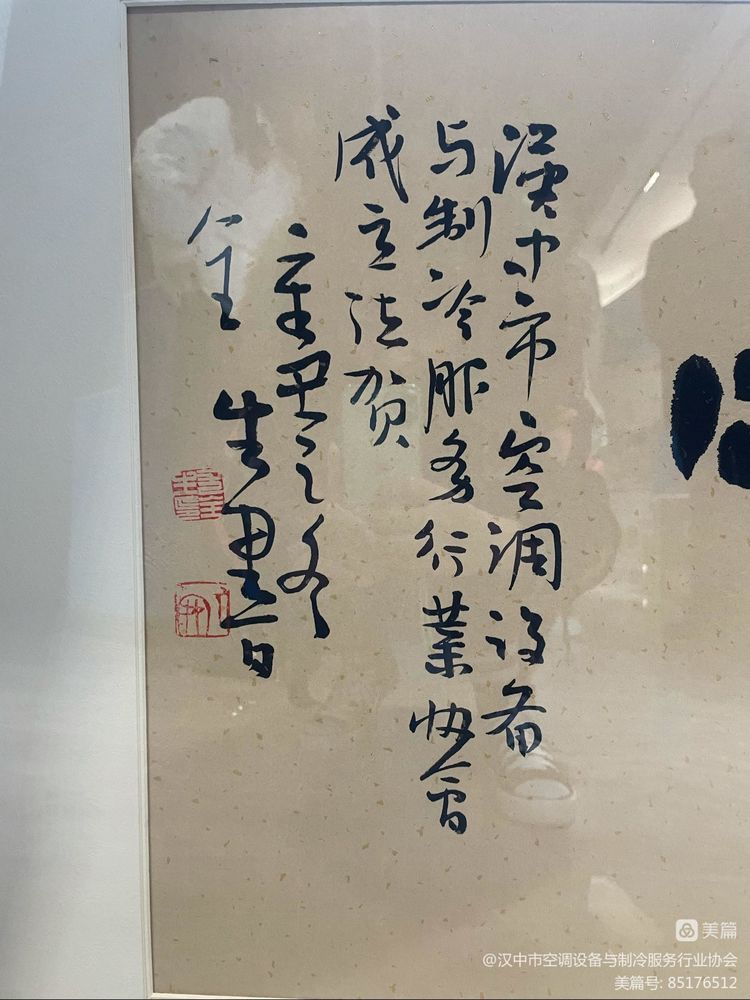 漢中市空调设备
与制冷服务行業协會
成立誌贺
辛丑之冬
全生書
美篇
@汉中市空调设备与制冷服务行业协会
美篇号: 85176512